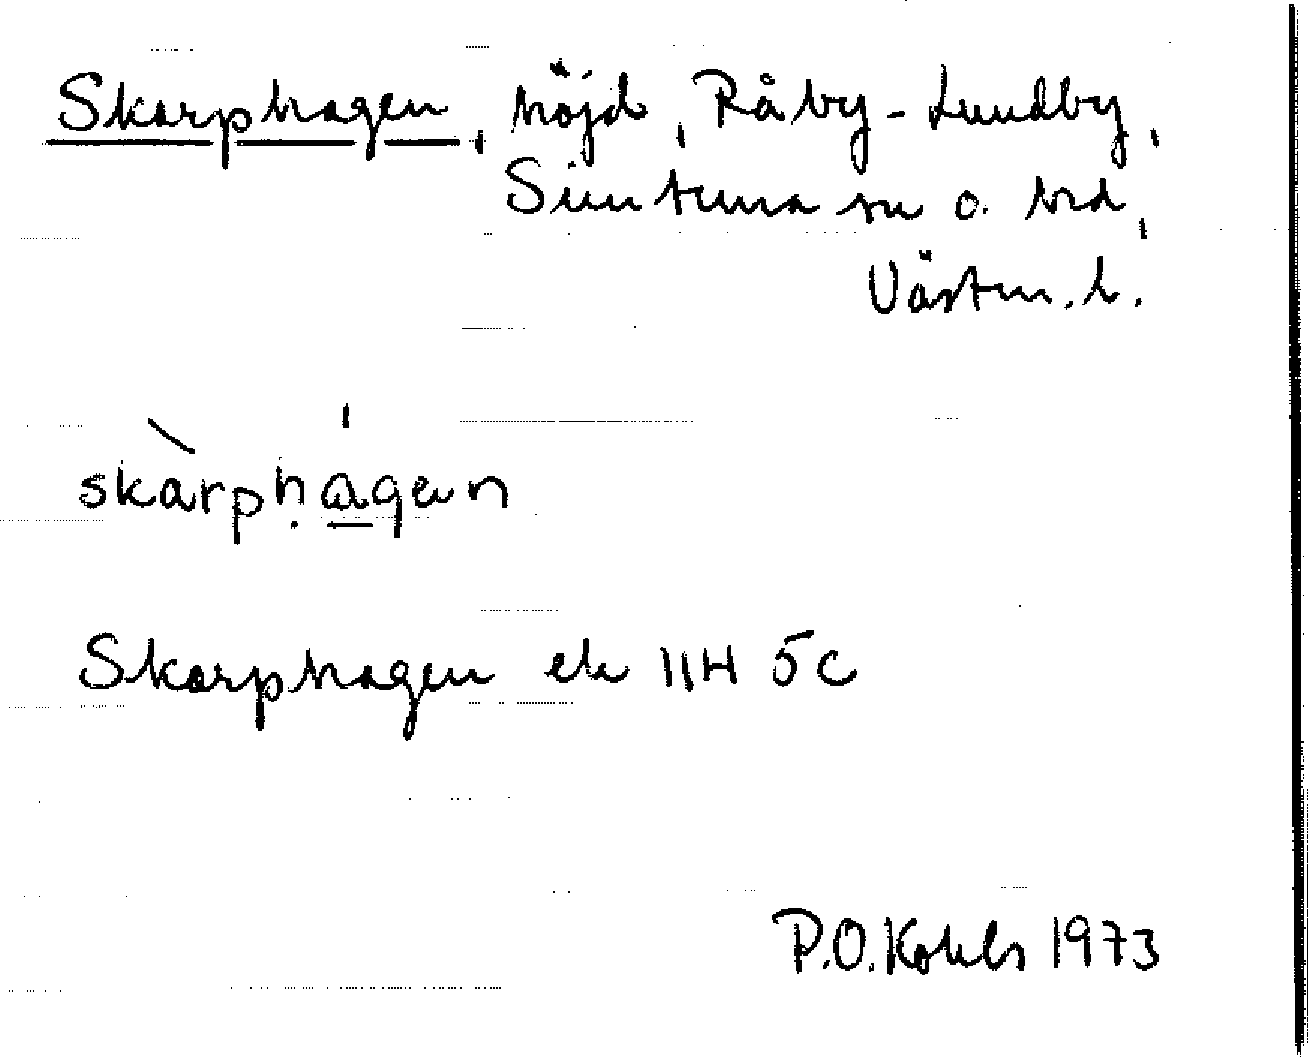 Skarphagen, höjd, Råby-Lundby,
Simtuna sn o. hd,
Västm. l.
skàrphágen
Skarphagen ek 11H 5c
P.O.Kohls 1973